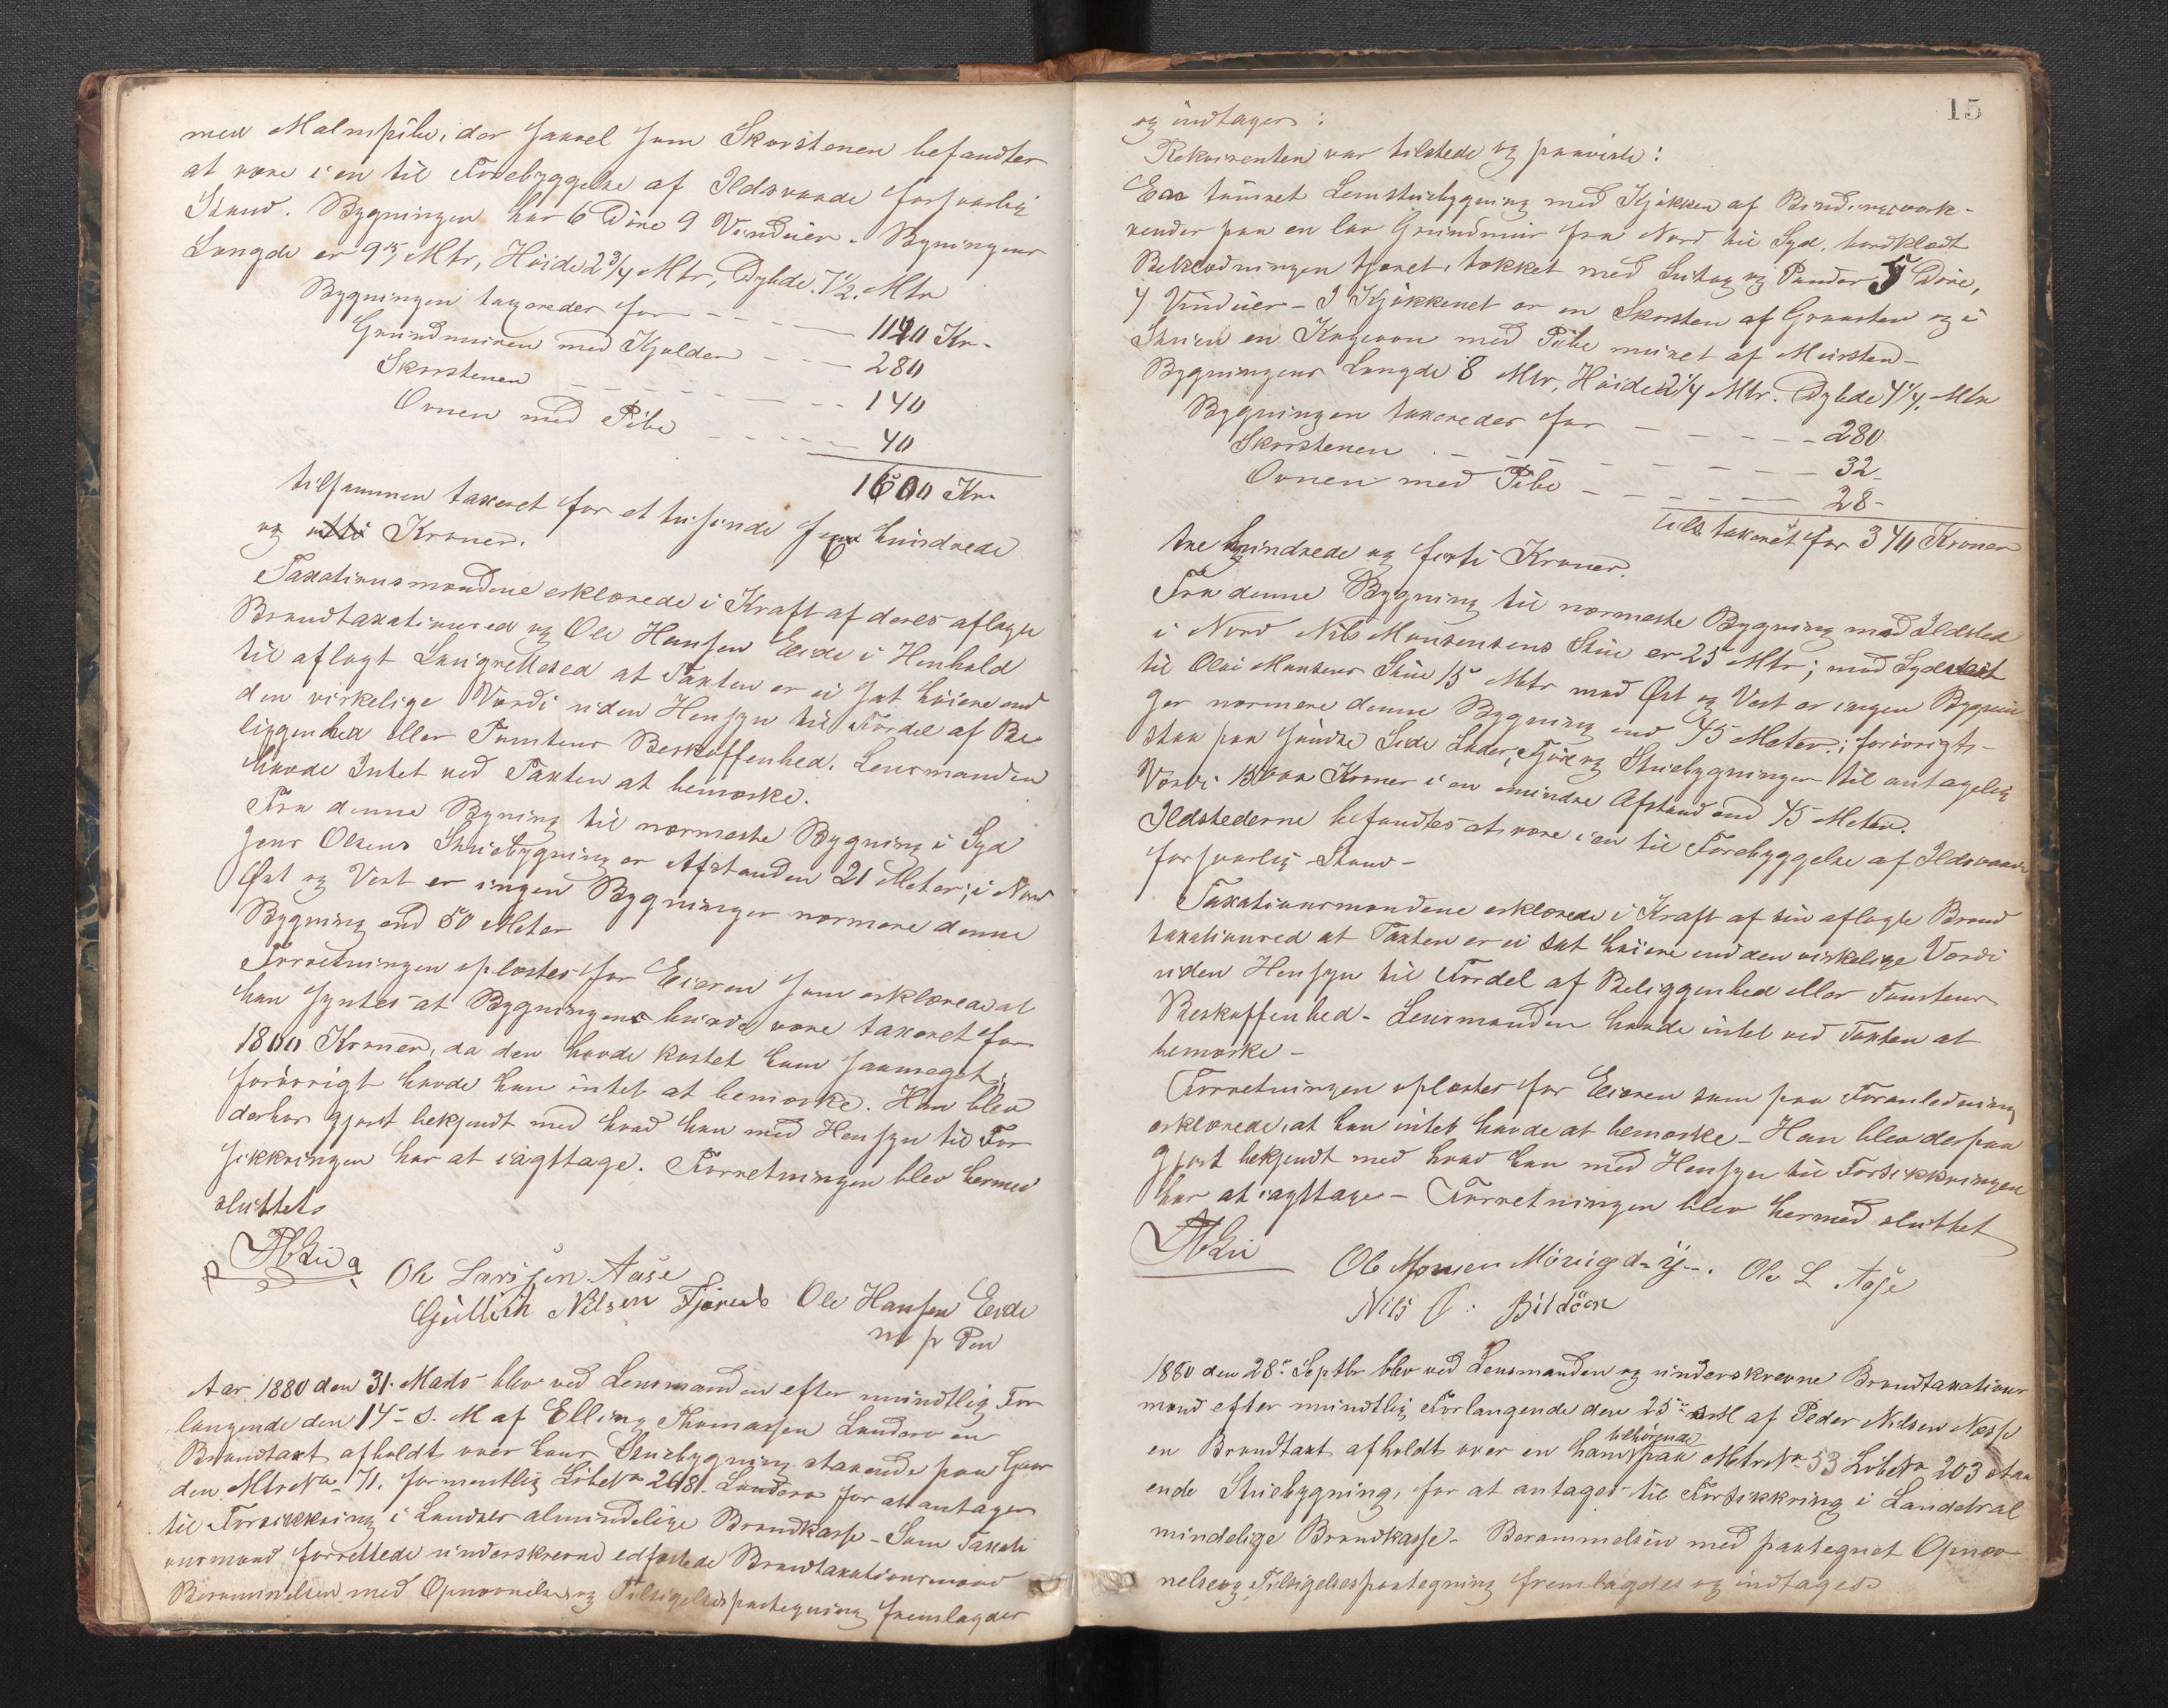 med Malmpibe, der saavel som Skorstenen befandtes
at være i en til Forebyggelse af Ildsvaade forsvarlig
Stand. Bygningen har 6 Döre 9 Vinduer. Bygningens
Længde er 9 Mtr, Höide 2 3/4 Mtr, Dybde 7 1/2 Mtr
Bygningen taxeredes for 1140 Kr.
Grundmuren med Kjelder 280
Skorstenen 140
Ovnen med Pibe 40
1600 Kr.
tilsammen taxeret for et tusinde sex hundrede
og Kroner.
Taxationsmændene erklærede i Kraft af deres aflagte
Brandtaxationsed og Ole Hansen Eide i Henhold
til aflagt Laugrettesed at Taxten er ei sat höiere end
den virkelige Værdi uden Hensyn til Fordel af Be
liggenhed eller Tomtens Beskaffenhed. Lensmanden
havde Intet ved Taxten at bemærke.
Fra denne Bygning til nærmeste Bygning i Syd
Jens Olsens Stuebygning er Afstanden 21 Meter; i Nord
Öst og Vest er ingen Bygninger nærmere denne
Bygning end 50 Meter
Forretningen oplæstes for Eieren som erklærede at
han syntes at Bygningen burde være taxeret for
1800 Kroner, da den havde kostet ham saameget;
forövrigt havde han intet at bemærke. Han blev
derhos gjort bekjendt med hvad han med Hensyn til For
sikkringen har at iagttage. Forretningen blev hermed
sluttet
Ole Larssen Aase
Gullich Nilsen Fjæreide Ole Hansen Eide
m p Pen
Aar 1880 den 31. Marts blev ved Lensmanden efter mundtlig For
langende den 14de d. M af Elling Thomassen Landero en
Brandtaxt afholdt over hans Stuebygning staaende paa Gaar
den Mtr No 71. formentlig Löbe No 268 Landero for at antages
til Forsikkring i Landets almindelige Brandkasse - Som Taxati
onsmænd forrettede underskrevne edfæstede Brandtaxationsmænd
Berammelsen med Opnævnelses og Tilsigelsespaategning fremlagdes
15
og indtages:
Rekvirenten var tilstede og paaviste:
En tömret Lemstuebygning med Kjökken af Bindingsværk
vender paa en lav Grundmur fra Nord til Syd, bordklædt
Beklædningen tjæret, tækket med Sutag og Pander 5 Döre,
4 Vinduer - I Kjökkenet er en Skorsten af Graasten og i
Stuen en Kogeovn med Pibe muret af Mursten -
Bygningens Længde 8 Mtr, Höide 2 1/4 Mtr. Dybde 4 1/4. Mtr
Bygningen taxeredes for 280
Skorstenen 32
Ovnen med Pibe 28
tils. taxeret for 340 Kroner
tre hundrede og förti Kroner.
Fra denne Bygning til nærmeste Bygning med Ildsted
i Nord Nils Monsensens Stue er 25 Mtr; mod Syd
til Olai Monsens Stue 15 Mtr mod Öst og Vest er ingen Bygnin
ger nærmere denne Bygning end 45 Meter; forövrigt
staa paa söndre Side Lader, Fjöse og Stuebygninger til antagelig
Værdi Kroner i en mindre Afstand end 45 Meter.
Ildstederne befandtes at være i en til Forebyggelse af Ildsvaade
forsvarlig Stand -
Taxationsmændene erklærede i Kraft af sin aflagte Brand
taxationsed at Taxten er ei sat höiere end den virkelige Værdi
uden Hensyn til Fordel af Beliggenhed eller Tomtens
Beskaffenhed - Lensmanden havde intet ved Taxten at
bemærke -
Forretningen oplæstes for Eieren som paa Foranledning
erklærede, at han intet havde at bemærke - Han blev derpaa
gjort bekjendt med hvad han med Hensyn til Forsikkringen
har at iagttage - Forretningen blev hermed sluttet
Ole Monsen Ole L Aase
Nils J. Bildöen
1880 den 28de Septbr blev ved Lensmanden og underskrevne Brandtaxations
mænd efter mundtlig Forlangende den 25de af Peder Nilsen Næsse
tilhörende
en Brandtaxt afholdt over en ham paa Mtr No 53 Löbe No 203 staa
ende Stuebygning, for at antages til Forsikkring i Landets al
mindelige Brandkasse - Berammelsen med paategnet Opnæv
nelse og Tilsigelsespaategning fremlagdes og indtages